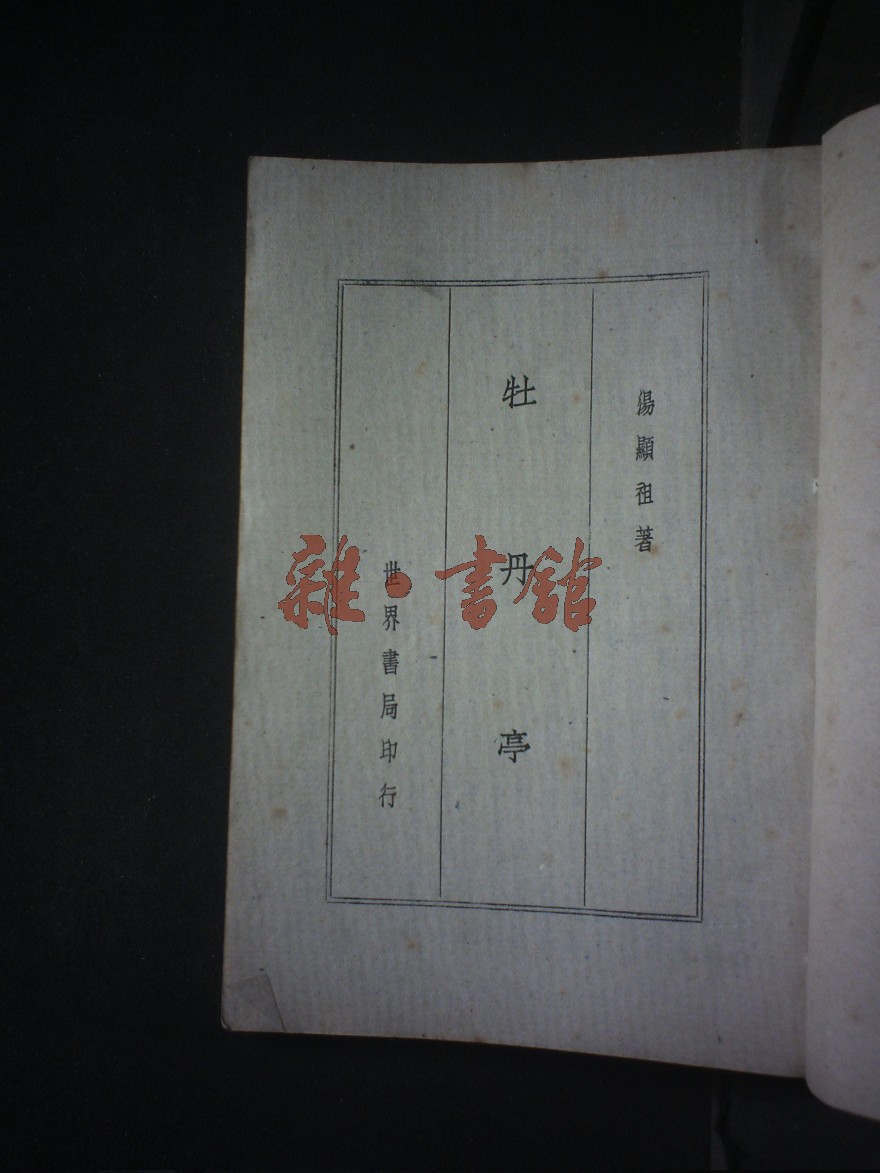 湯顯祖著
牡丹亭
世界書局印行
雜·書館